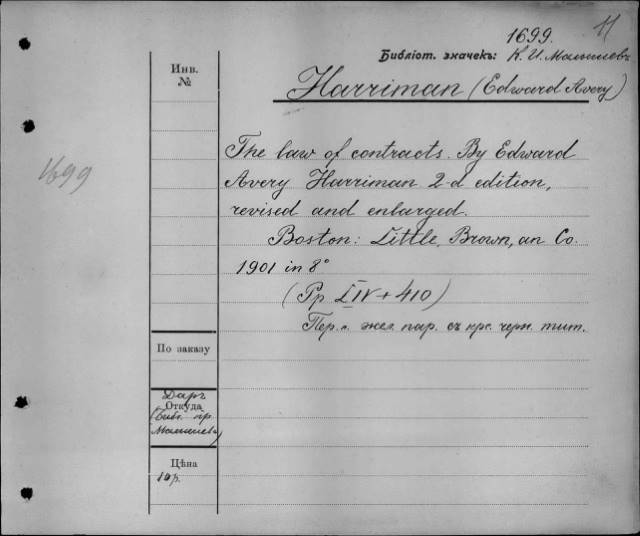 1699. 11
Библіот. значекъ: К. И. Малышевъ
Инв.
№
Harriman (Edward Avery)
The law of contracts. By Edward
1699
Avery Harriman 2-d edition,
revised and enlarged.
Boston: Little, Brown, an Co.
1901 in 8°
(Pp LIV + 410)
Пер. жел. пар. съ крс. черн. тит.
По заказу
Даръ
Откуда
(Библ. пр.
Малышева)
Цѣна
10 р.